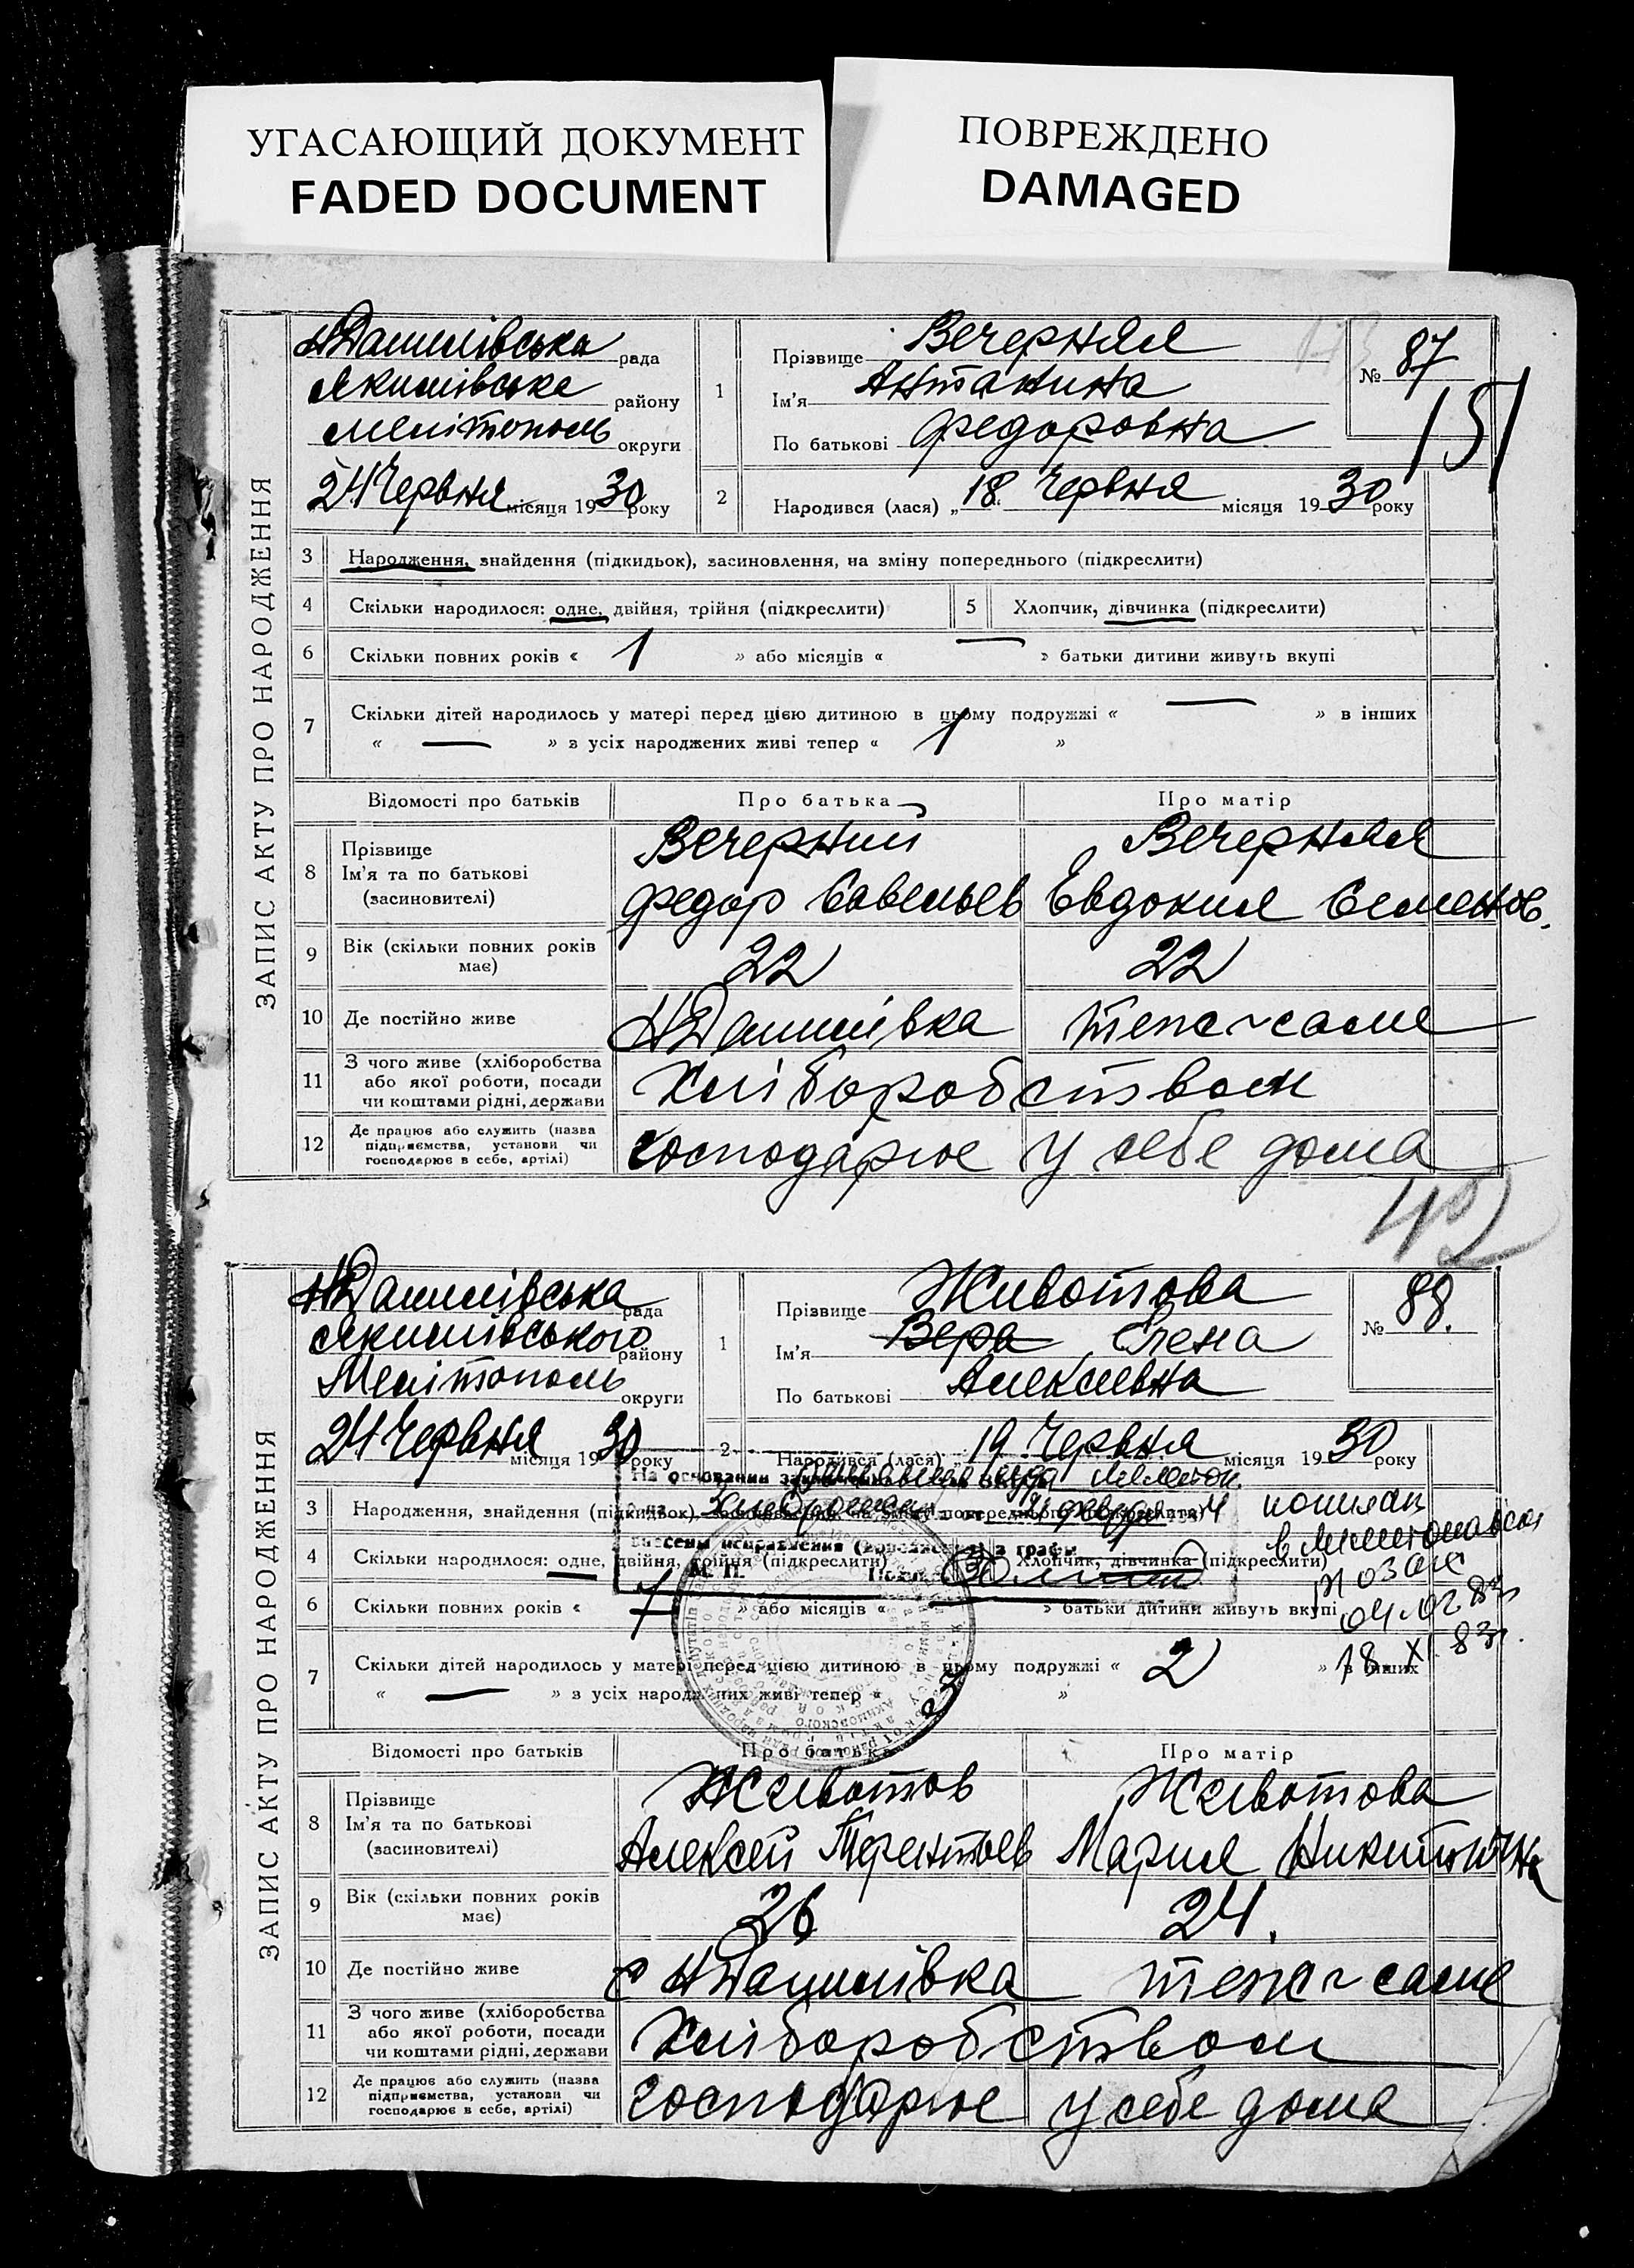 УГАСАЮЩИЙ ДОКУМЕНТ
FADED DOCUMENT
ПОВРЕЖДЕНО
DAMAGED
ЗАПИС АКТУ ПРО НАРОДЖЕННЯ
НДанилівська рада
Якимівська району
Мелітополь округи
24 Червня місяця 1930 року
1
Прізвище Вечерняя
Ім'я Антанина
По батькові Федоровна
№ 87
151
2 Народився (лася) „18“ Червня місяця 1930 року
3 Народження, знайдення (підкидьок), засиновлення, на зміну попереднього (підкреслити)
4 Скільки народилося: одне, двійня, трійня (підкреслити) 5 Хлопчик, дівчинка (підкреслити)
6 Скільки повних років « 1 » або місяців « — » батьки дитини живуть вкупі
7 Скільки дітей народилось у матері перед цією дитиною в цьому подружжі « — » в інших
« — » з усіх народжених живі тепер « 1 »
Відомості про батьків Про батька Про матір
8 Прізвище Вечерний Вечерняя
Ім'я та по батькові Федор Савельев Евдокия Семенов.
(засиновителі)
9 Вік (скільки повних років має) 22 22
10 Де постійно живе НДанилівка тепа-саме
11 З чого живе (хліборобства або якої роботи, посади чи коштами рідні, держави Хліборобством
12 Де працює або служить (назва підприємства, установи чи господарює в себе, артілі) господарює у себе дома
ЗАПИС АКТУ ПРО НАРОДЖЕННЯ
НДанилівська рада
Якимівського району
Мелітополь округи
24 Червня місяця 1930 року
1
Прізвище Животова
Ім'я Вера Елена
По батькові Алексевна
№ 88.
2 Народився (лася) „19 Червня місяця 1930 року
На основании
3 Народження, знайдення (підкидьок), засиновлення, на зміну попереднього (підкреслити)
внесены исправления в графы
4 Скільки народилося: одне, двійня, трійня (підкреслити) Хлопчик, дівчинка (підкреслити)
М. П.
04.02 83
6 Скільки повних років « 7 » або місяців « — » батьки дитини живуть вкупі
18. XI 83
7 Скільки дітей народилось у матері перед цією дитиною в цьому подружжі « 2 » в інших
« — » з усіх народжених живі тепер « »
Відомості про батьків Про батька Про матір
8 Прізвище Животов Животова
Ім'я та по батькові Алексей Терентьев Мария Никитична
(засиновителі)
9 Вік (скільки повних років має) 26 24.
10 Де постійно живе с НДанилівка тепа-саме
11 З чого живе (хліборобства або якої роботи, посади чи коштами рідні, держави Хліборобством
12 Де працює або служить (назва підприємства, установи чи господарює в себе, артілі) господарює у себе дома